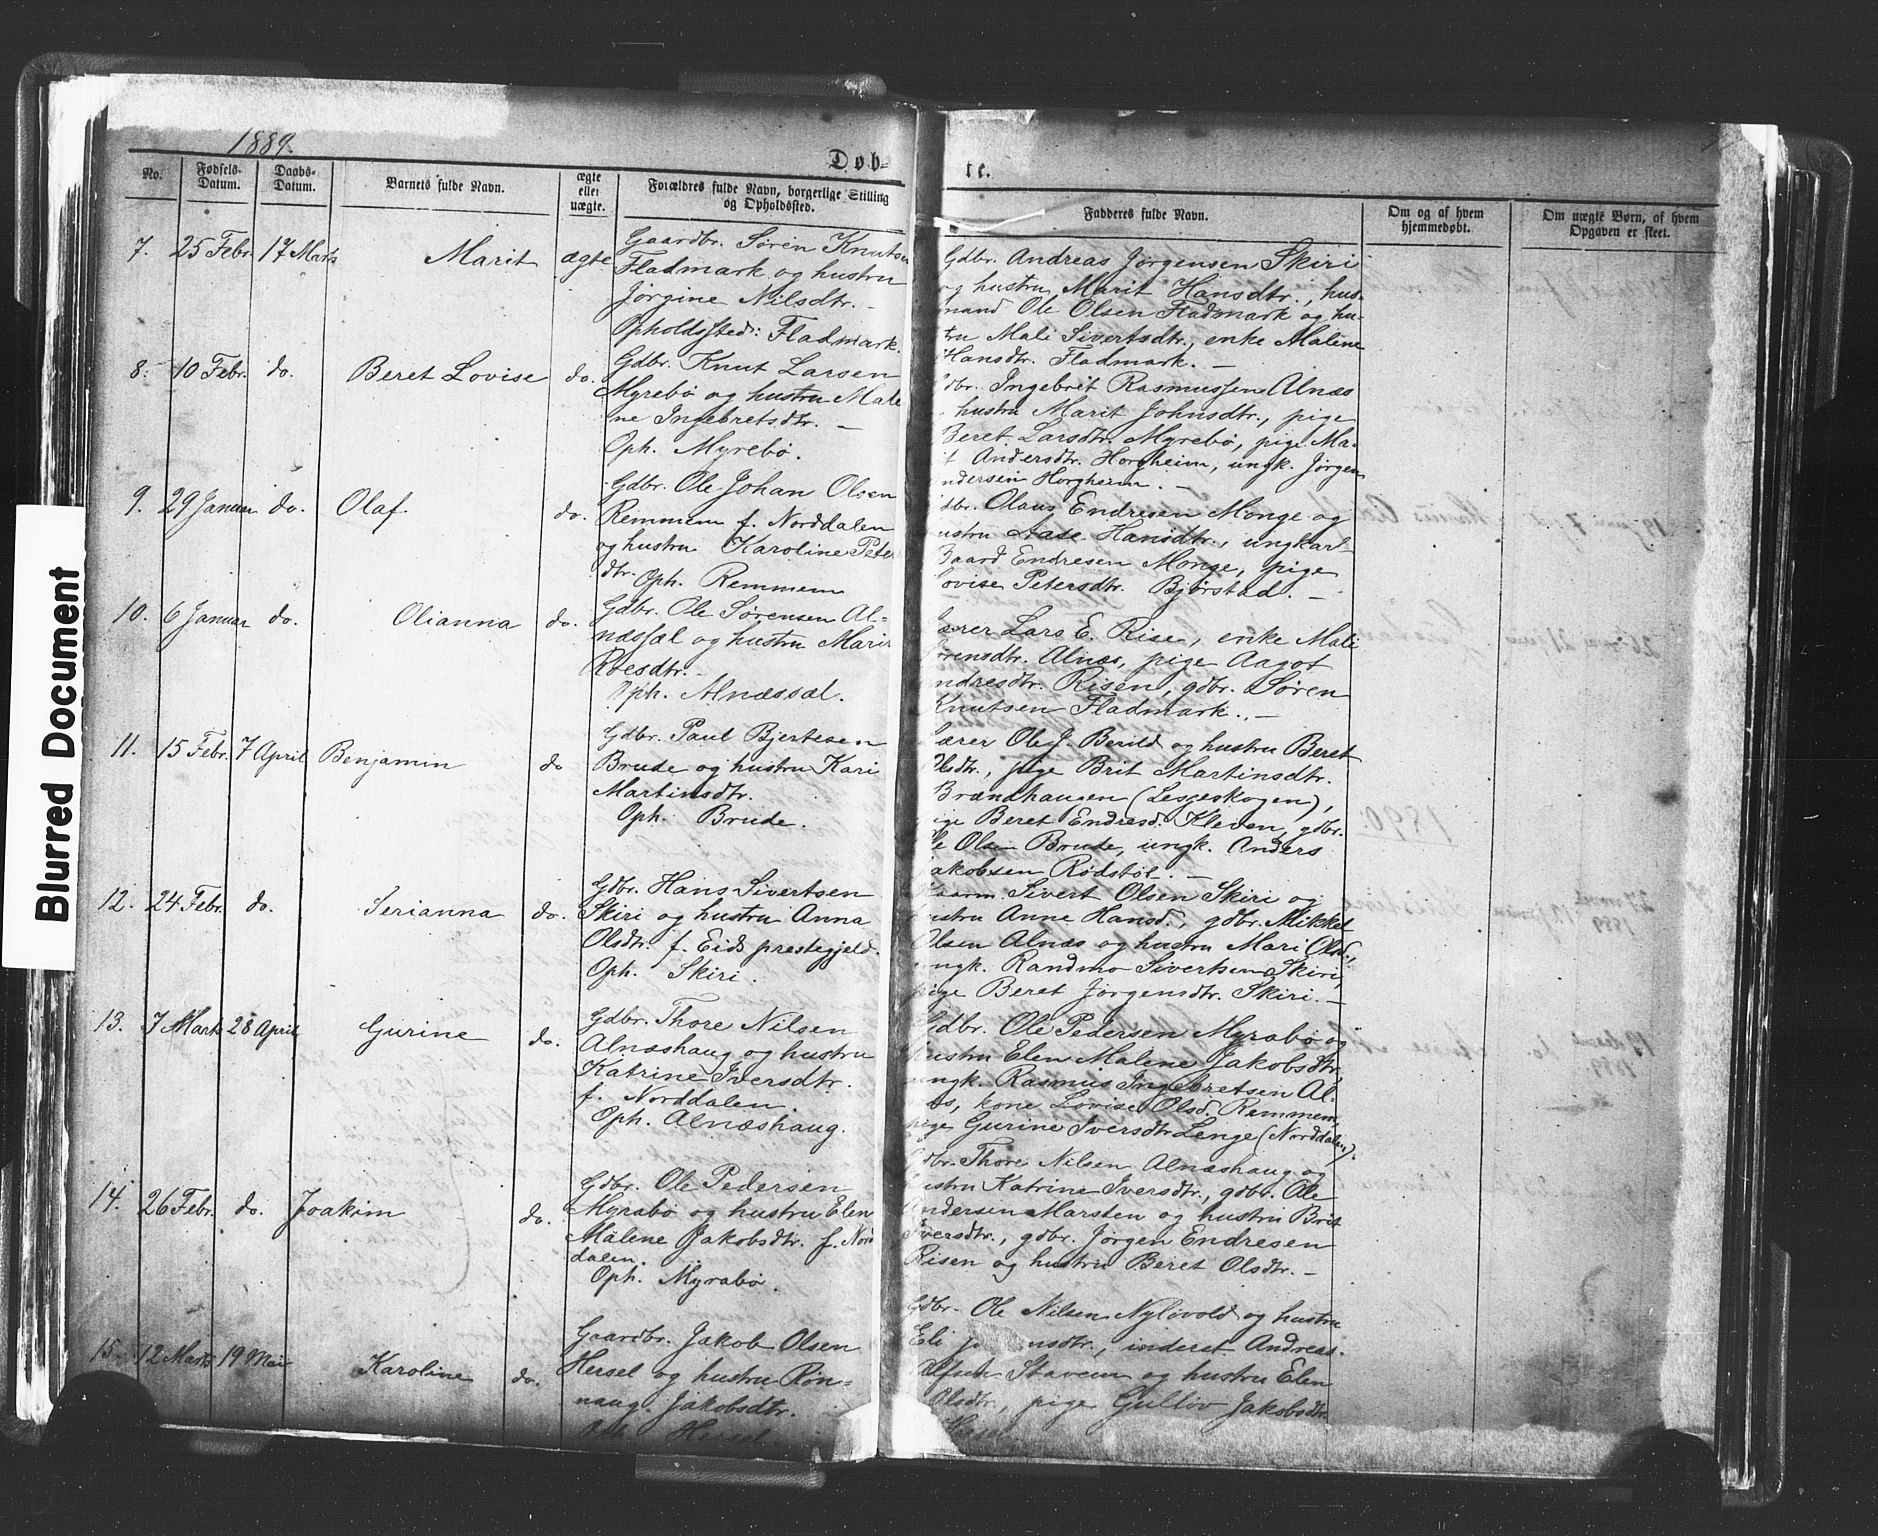 Blurred Document
1889.
Døb=
re.
No.
Fødsels-Datum.
Daabs-Datum.
Barnets fulde Navn.
ægte eller uægte.
Forældres fulde Navn, borgerlige Stilling og Opholdssted.
Fadderes fulde Navn.
Om og af hvem hjemmedøbt.
Om uægte Børn, af hvem Opgaven er skeet.
7. 25 Febr. 17 Marts Marit ægte
Gaardbr. Søren Knutsen
Fladmark og hustru
Jørgine Nilsdtr. -
Opholdssted: Fladmark.
Gdbr. Andreas Jørgensen Skiri
og hustru Marit Hansdtr., hus-
mand Ole Olsen Fladmark og hu-
tru Mali Sivertsdtr., enke Maline
Hansdtr. Fladmark. -
8. 10 Febr. do. Beret Lovise do.
Gdbr. Knut Larsen
Myrebø og hustru Male
ne Ingebretsdtr. -
Oph. Myrebø.
dbr. Ingebrit Rasmussen Alnæs
hustru Marit Johnsdtr., pige
Beret Larsdtr. Myrebø, pige Ma-
it Andersdtr. Horgheim, ungk. Jørgen
ndersen Horgheim. -
9. 29 Januar do. Olaf. do.
Gdbr. Ole Johan Olsen
Remmem f. Norddalen
og hustru Karoline Peters
dtr. Oph. Remmem
dbr. Olaus Endresen Monge og
ustru Aase Hansdtr., ungkarl
Baard Endresen Monge, pige
Lovise Petersdtr. Bjørstad. -
10. 6 Januar do. Olianna do.
Gdbr. Ole Sørensen Al-
næssæl og hustru Marit
Roesdtr. -
Oph. Alnæssæl.
Lærer Lars E. Rise, enke Mali
ørensdtr. Alnæs, pige Aagot
ndresdtr. Risen, gdbr. Søren
Knutsen Fladmark. -
11. 15 Febr. 7 April Benjamin do
Gdbr. Paul Bjertesen
Brude og hustru Kari
Martinsdtr.
Oph. Brude.
Lærer Ole J. Berild og hustru Beret
Olsdtr., pige Brit Martinsdtr.
Brændhaugen (Lesjeskogen),
ige Beret Endresd. Kleven, gdbr.
le Olsen Brude, ungk. Anders
Jakobsen Rødstøl. -
12. 24 Febr. do. Serianna do.
Gdbr. Hans Sivertsen
Skiri og hustru Anna
Olsdtr. f. Eids prestegjeld.
Oph. Skiri.
Kaarm. Sivert Olsen Skiri og
hustru Anne Hansd., gdbr. Mikkel
Olsen Alnæs og hustru Mari Olsd.,
ungk. Randmo Sivertsen Skiri,
pige Beret Jørgensdtr. Skiri. -
13. 7 Marts 28 April Gurine do.
Gdbr. Thore Nilsen
Alnæshaug og hustru
Katrine Iversdtr.
f. Norddalen.
Oph. Alnæshaug.
Gdbr. Ole Pedersen Myrabø og
hustru Elen Malene Jakobsdtr.,
ungk. Rasmus Ingebretsen Al-
næs, kone Lovise Olsd. Remmem,
pige Gurine Iversdtr Lenge (Norddalen).
14. 26 Febr. do. Joakim do.
Gdbr. Ole Pedersen
Myrabø og hustru Elen
Malene Jakobsdtr. f. Nord
dalen.
Oph. Myrabø.
Gdbr. Thore Nilsen Alnæshaug og
hustru Katrine Iversdtr., gdbr. Ole
Andersen Marsten og hustru Brit
Iversdtr., gdbr. Jørgen Endresen
Risen og hustru Beret Olsdtr. -
15. 12 Marts 19 Mai Karoline do.
Gaardbr. Jakob Olsen
Hersel og hustru Røn-
naug. Jakobsdtr.
Oph. Hersel.
Gdbr. Ole Nilsen Nyløvold og hustru
Eli J nsdtr., inderst Andreas
Olsen Stavem og hustru Elen
Olsdtr., pige Gulløv Jakobsdtr.